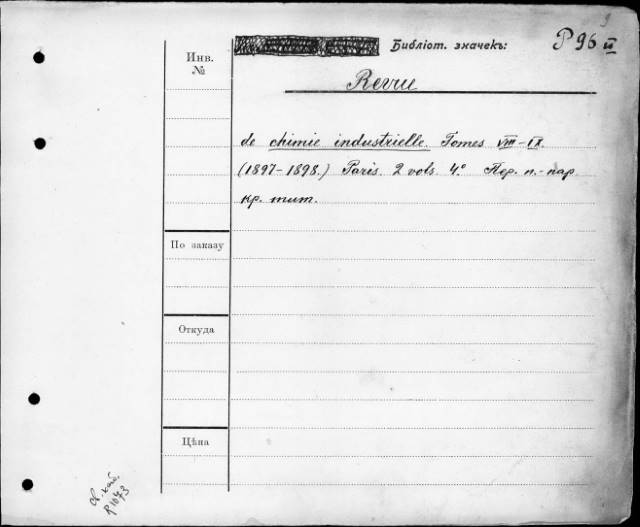 9
Библіот. значекъ: P 96 II
Инв.
№
Revue
de chimie industrielle. Tomes VIII-IX.
(1897-1898.) Paris. 2 vols. 4.° Пер. п.-пар.
кр. тит.
По заказу
Откуда
Цѣна
св. кат.
R 1073